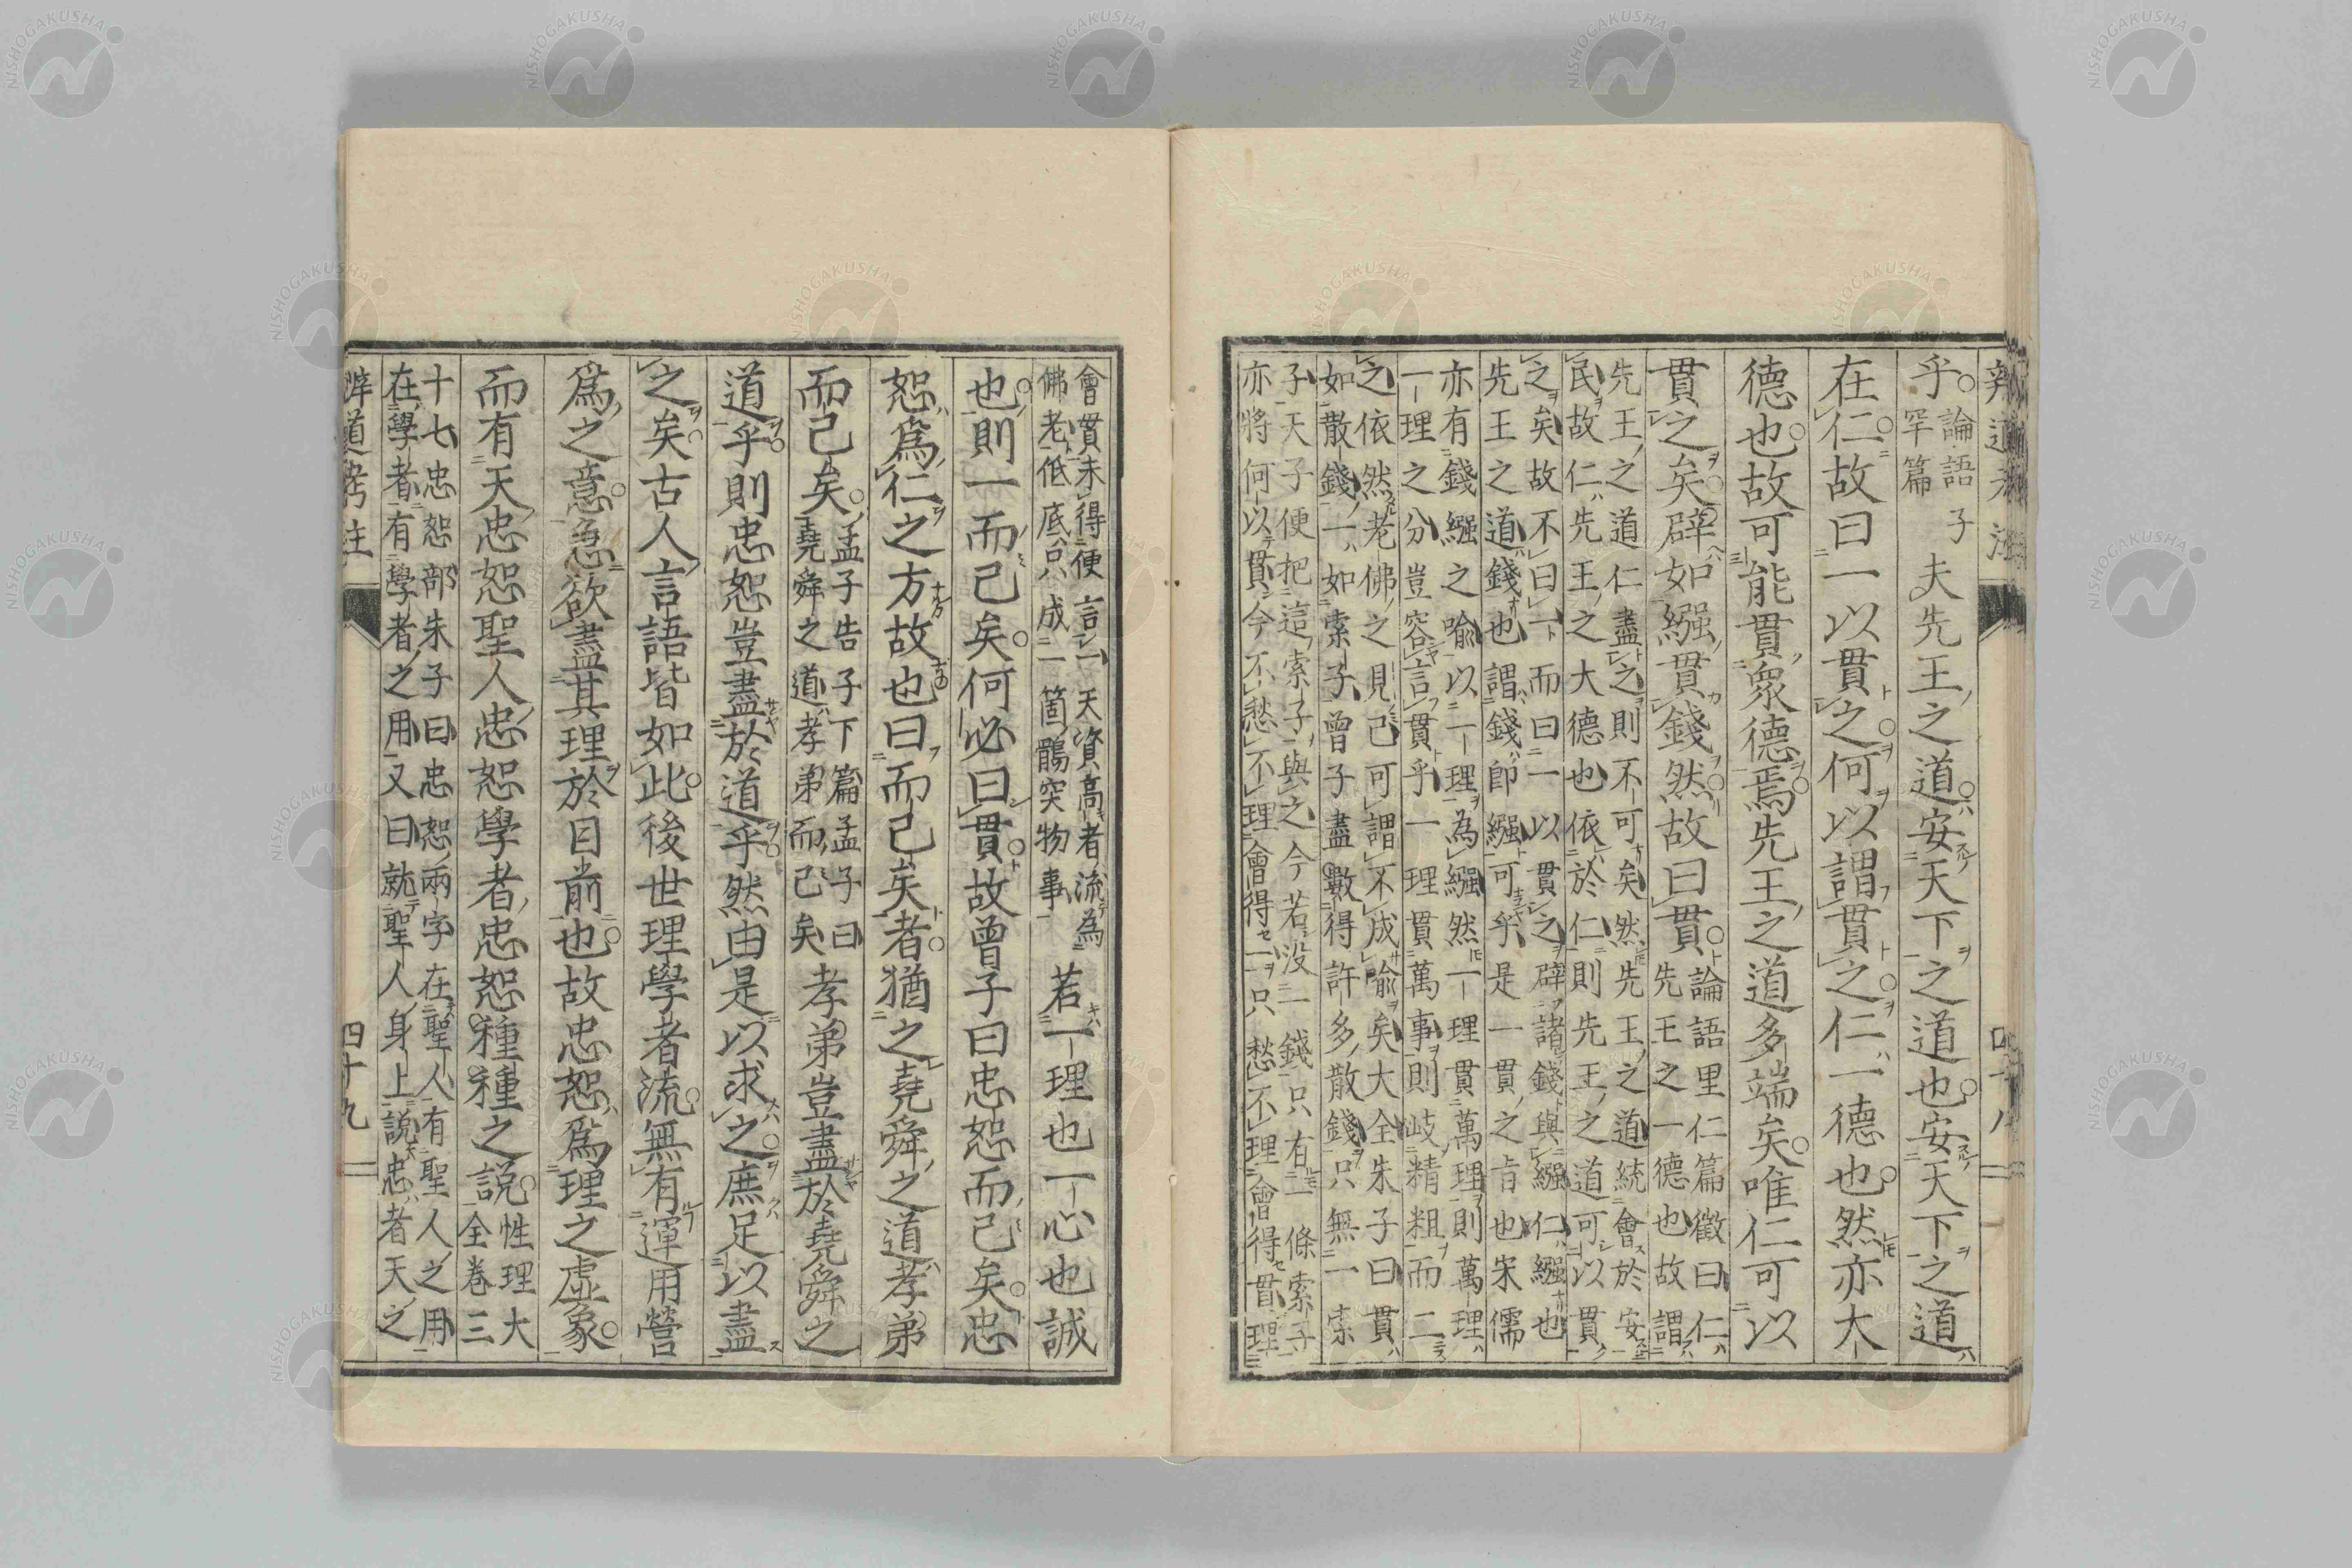 乎論語子罕篇夫先王之道安天下之道也安天下之道
在仁故曰一以貫之何以謂貫之仁一德也然亦大
德也故可能貫衆德焉先王之道多端矣唯仁可以
貫之矣辟如繦貫錢然故曰貫
論語里仁篇徵曰仁
先王之一德也故謂
先王之道仁盡之則不可矣然先王之道統會於安
民故仁先王之大德也依於仁則先王之道可以貫
之矣故不曰一而曰一以貫之辟諸錢與繦仁繦也
先王之道錢也謂錢卽繦可乎是一貫之旨也宋儒
亦有錢繦之喩以一理為繦然一理貫萬理則萬理
一理之分豈容言貫乎一理貫萬事則岐精粗而二
之依然老佛之見已可謂不成喩矣大全朱子曰貫
如散錢一如索子曾子盡數得許多散錢只無一索
子天子便把這索子與之今若没一錢只有一條索子
亦將何以貫今不愁不理會得一只愁不理會得貫理
會貫未得便言一天資高者流為
佛老低底只成一箇鶻突物事
若一理也一心也誠
也則一而已矣何必曰貫故曾子曰忠恕而已矣忠
恕爲仁之方故也曰而已矣者猶之堯舜之道孝弟
而已矣
孟子告子下篇孟子曰
堯舜之道孝弟而已矣
孝弟豈盡於堯舜之
道乎則忠恕豈盡於道乎然由是以求之庶足以盡
之矣古人言語皆如此後世理學者流無有運用營
爲之意急欲盡其理於目前也故忠恕爲理之虛象
而有天忠恕聖人忠恕學者忠恕種種之說
性理大
全卷三
十七忠恕部朱子曰忠恕兩字在聖人有聖人之用
在學者有學者之用又曰就聖人身上說忠者天之
辨道考註
四十九